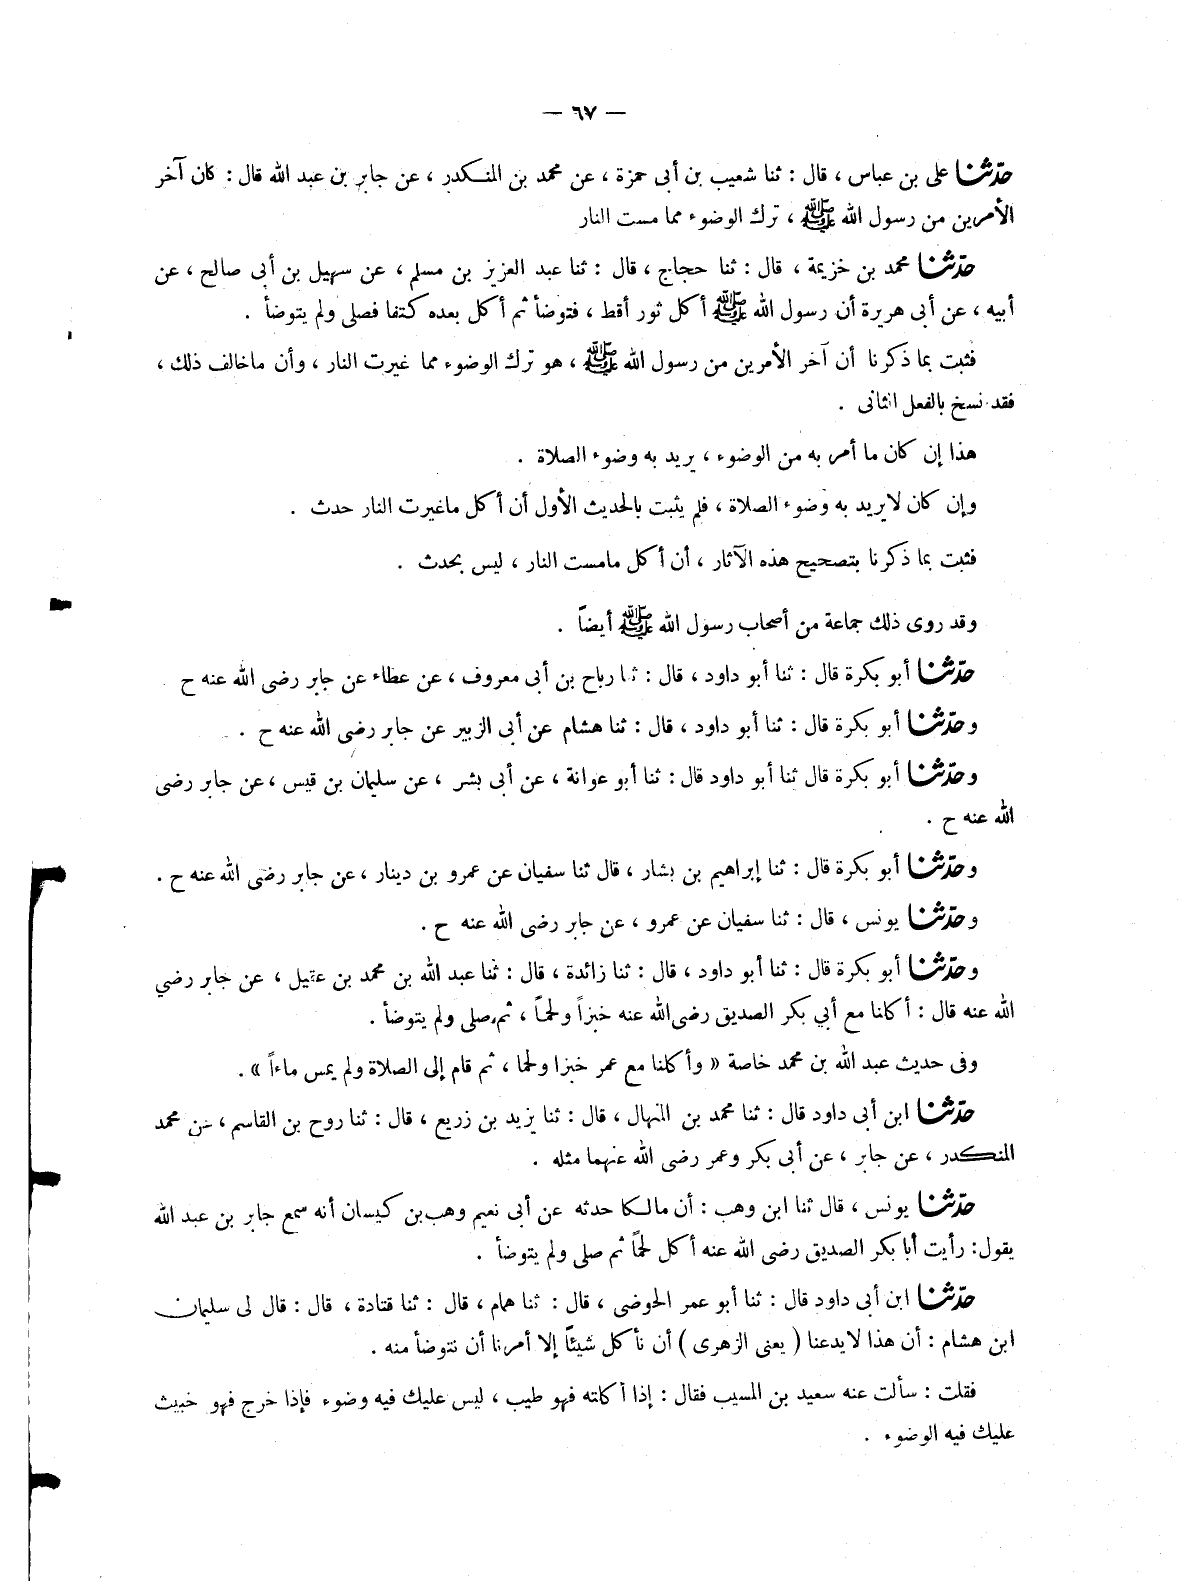 — ٦٧ —
حدّثنا على بن عباس ، قال : ثنا شعيب بن أبى حمزة ، عن محمد بن المنكدر ، عن جابر بن عبد الله قال : كان آخر
الأمرين من رسول الله ﷺ ، ترك الوضوء مما مست النار
حدّثنا محمد بن خزيمة ، قال : ثنا حجاج ، قال : ثنا عبد العزيز بن مسلم ، عن سهيل بن أبى صالح ، عن
أبيه ، عن أبى هريرة أن رسول الله ﷺ أكل ثور أقط ، فتوضأ ثم أكل بعده كتفا فصلى ولم يتوضأ .
فثبت بما ذكرنا أن آخر الأمرين من رسول الله ﷺ ، هو ترك الوضوء مما غيرت النار ، وأن ماخالف ذلك ،
فقد نسخ بالفعل الثانى .
هذا إن كان ما أمر به من الوضوء ، يريد به وضوء الصلاة .
وإن كان لايريد به وضوء الصلاة ، فلم يثبت بالحديث الأول أن أكل ماغيرت النار حدث .
فثبت بما ذكرنا بتصحيح هذه الآثار ، أن أكل مامست النار ، ليس بحدث .
وقد روى ذلك جماعة من أصحاب رسول الله ﷺ أيضاً .
حدّثنا أبو بكرة قال : ثنا أبو داود ، قال : ثنا رباح بن أبى معروف ، عن عطاء عن جابر رضى الله عنه ح
وحدّثنا أبو بكرة قال : ثنا أبو داود ، قال : ثنا هشام عن أبى الزبير عن جابر رضى الله عنه ح .
وحدّثنا أبو بكرة قال ثنا أبو داود قال : ثنا أبو عوانة ، عن أبى بشر ، عن سليمان بن قيس ، عن جابر رضى
الله عنه ح .
وحدّثنا أبو بكرة قال : ثنا إبراهيم بن بشار ، قال ثنا سفيان عن عمرو بن دينار ، عن جابر رضى الله عنه ح .
وحدّثنا يونس ، قال : ثنا سفيان عن عمرو ، عن جابر رضى الله عنه ح .
وحدّثنا أبو بكرة قال : ثنا أبو داود ، قال : ثنا زائدة ، قال : ثنا عبد الله بن محمد بن عقيل ، عن جابر رضي
الله عنه قال : أكلنا مع أبي بكر الصديق رضى الله عنه خبزاً ولحماً ، ثم صلى ولم يتوضأ .
وفى حديث عبد الله بن محمد خاصة « وأكلنا مع عمر خبزا ولحما ، ثم قام إلى الصلاة ولم يمس ماءاً » .
حدّثنا ابن أبى داود قال : ثنا محمد بن المنهال ، قال : ثنا يزيد بن زريع ، قال : ثنا روح بن القاسم ، عن محمد
المنكدر ، عن جابر ، عن أبى بكر وعمر رضى الله عنهما مثله .
حدّثنا يونس ، قال ثنا ابن وهب : أن مالكا حدثه عن أبى نعيم وهب بن كيسان أنه سمع جابر بن عبد الله
يقول : رأيت أبا بكر الصديق رضى الله عنه أكل لحماً ثم صلى ولم يتوضأ .
حدّثنا ابن أبى داود قال : ثنا أبو عمر الحوضى ، قال : ثنا همام ، قال : ثنا قتادة ، قال : قال لى سليمان
ابن هشام : أن هذا لايدعنا ( يعنى الزهرى ) أن نأكل شيئاً إلا أمرنا أن نتوضأ منه .
فقلت : سألت عنه سعيد بن المسيب فقال : إذا أكلته فهو طيب ، ليس عليك فيه وضوء فإذا خرج فهو خبيث
عليك فيه الوضوء .